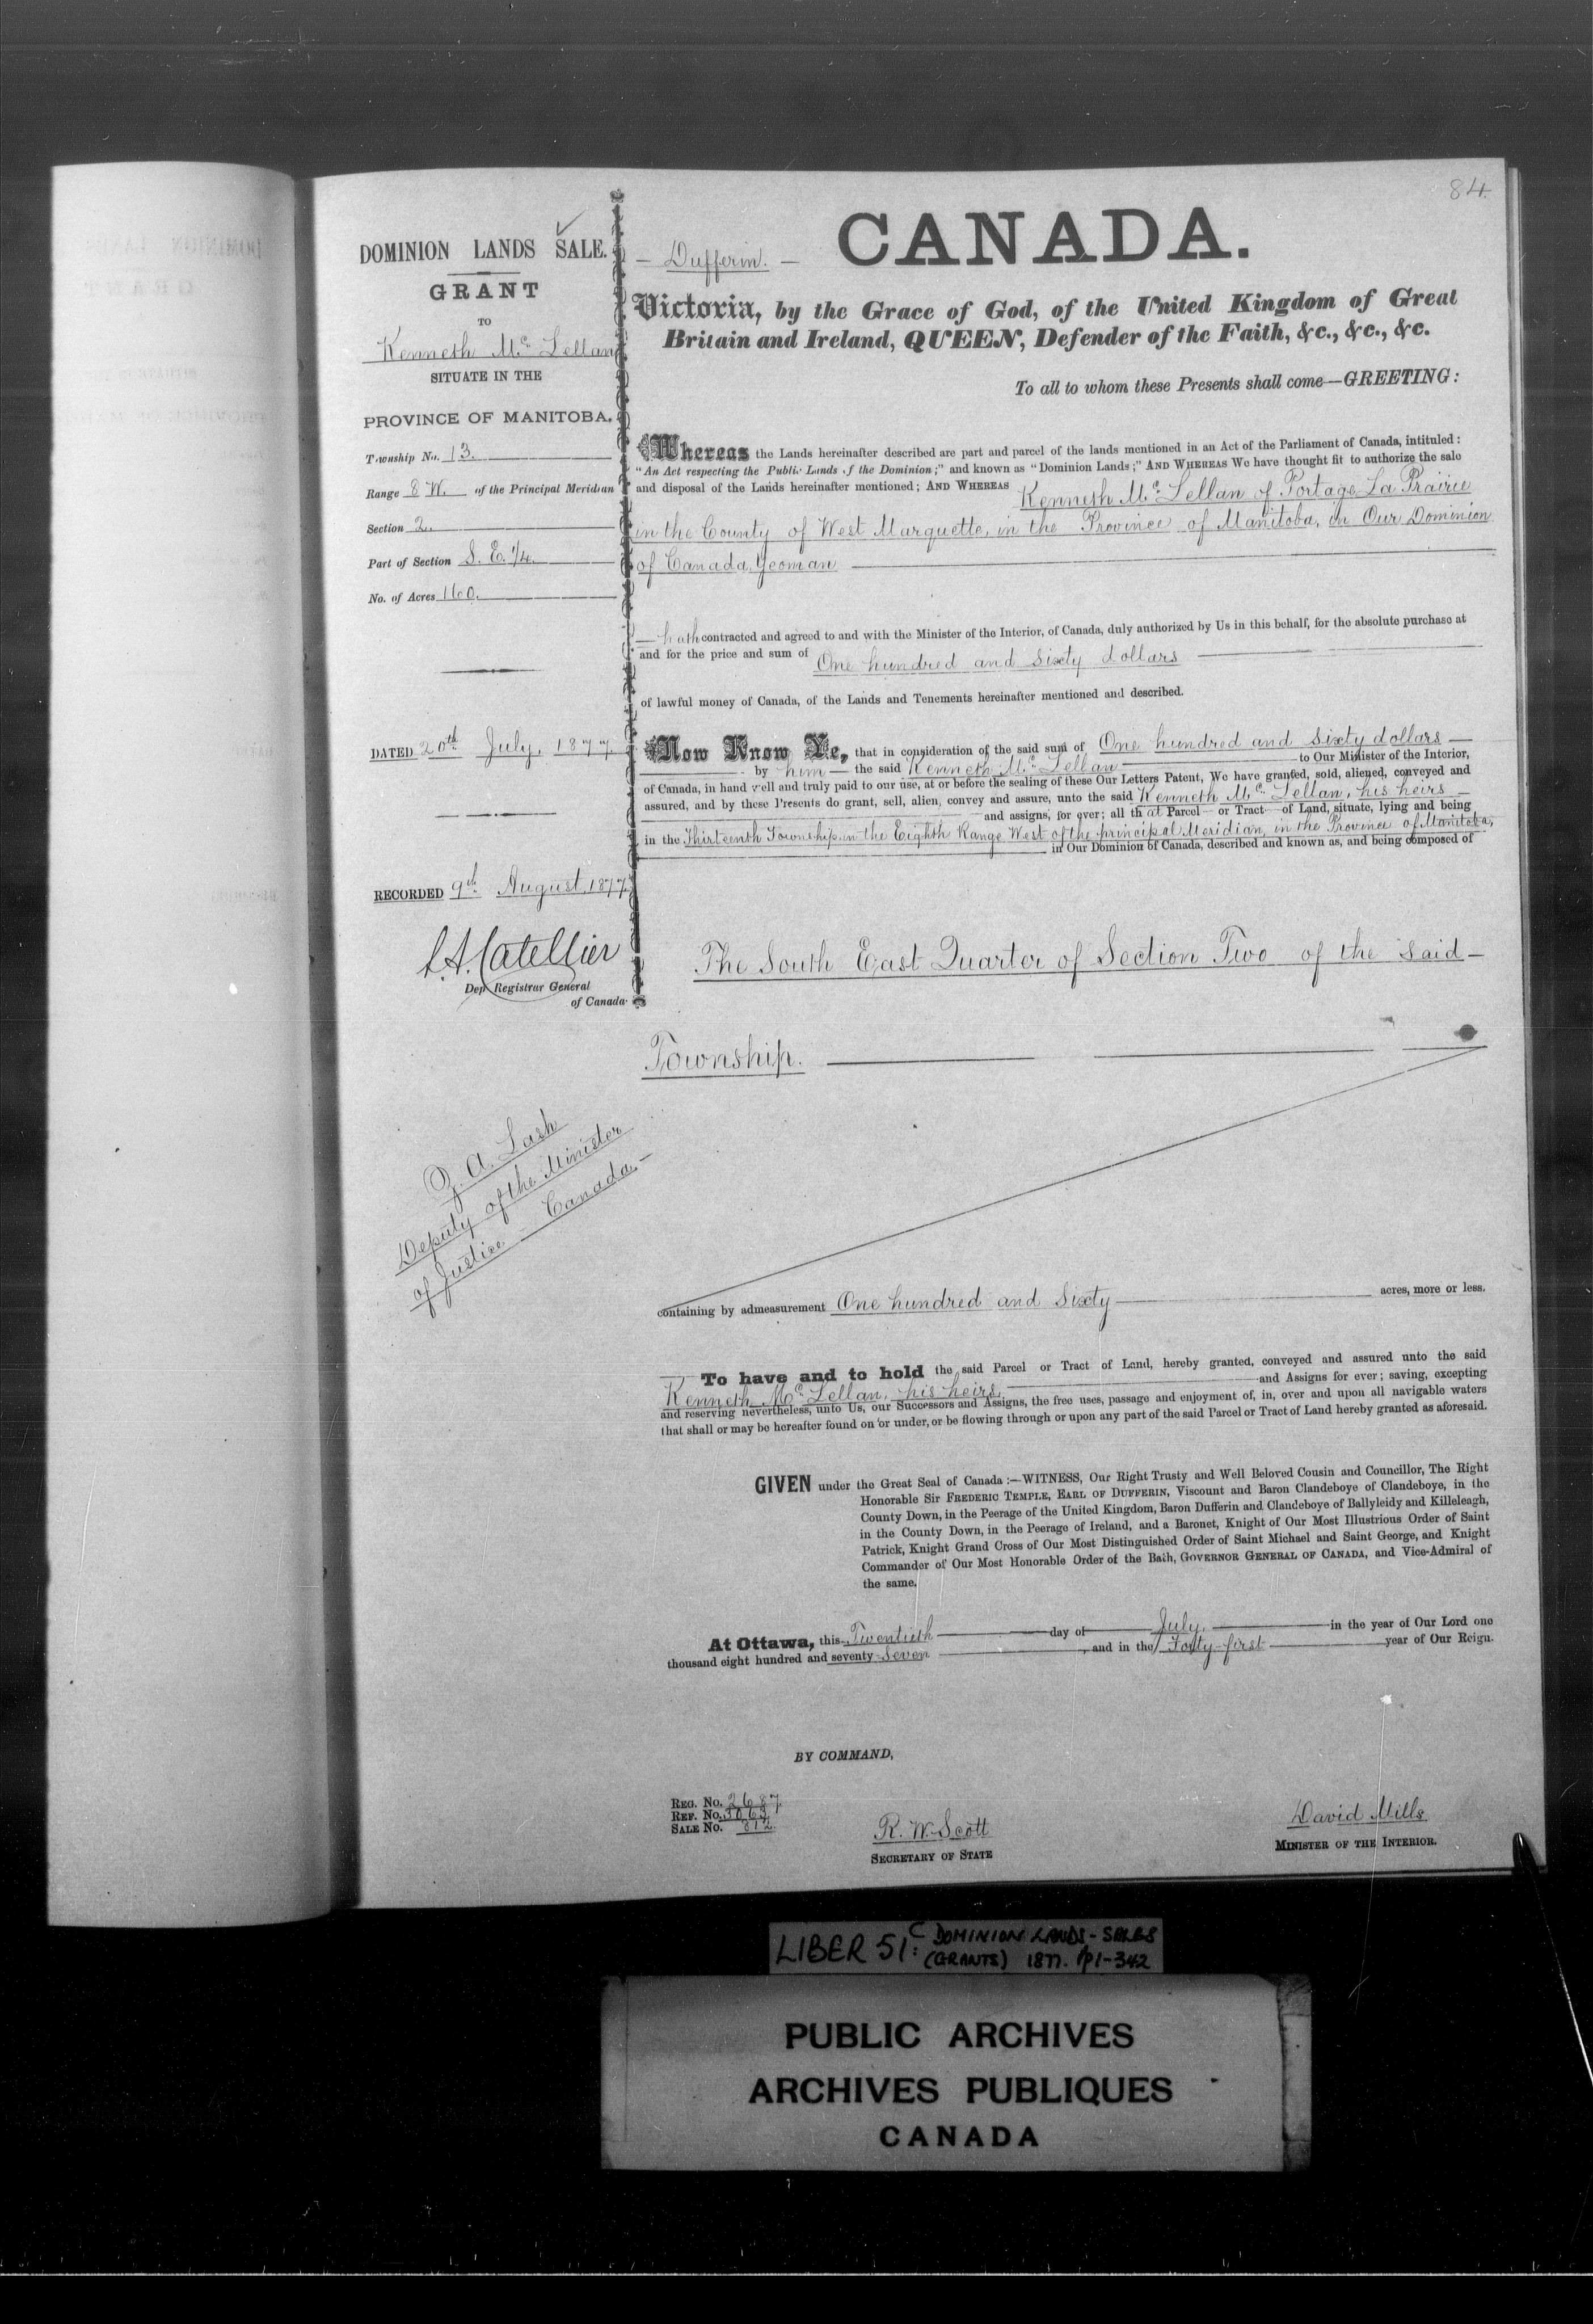 84.
DOMINION LANDS SALE.
GRANT
TO
Kenneth Mc Lellan
SITUATE IN THE
PROVINCE OF MANITOBA.
Township No. 13.
Range 8 W. of the Principal Meridian
Section 2.
Part of Section S. E. 1/4.
No. of Acres 160.
DATED 20th July, 1877.
RECORDED 9th August, 1877.
L.A. Catellier
Dep. Registrar General
of Canada.
Z. A. Lash
Deputy of the Minister
of Justice - Canada. -
- Dufferin. -
CANADA.
Victoria, by the Grace of God, of the United Kingdom of Great
Britain and Ireland, QUEEN, Defender of the Faith, &c., &c., &c.
To all to whom these Presents shall come—GREETING:
Whereas the Lands hereinafter described are part and parcel of the lands mentioned in an Act of the Parliament of Canada, intituled:
"An Act respecting the Public Lands of the Dominion;" and known as "Dominion Lands;" AND WHEREAS We have thought fit to authorize the sale
and disposal of the Lands hereinafter mentioned; AND WHEREAS Kenneth Mc Lellan of Portage La Prairie
in the County of West Marquette, in the Province of Manitoba, in Our Dominion
of Canada, Yeoman
hath contracted and agreed to and with the Minister of the Interior, of Canada, duly authorized by Us in this behalf, for the absolute purchase at
and for the price and sum of One hundred and Sixty dollars
of lawful money of Canada, of the Lands and Tenements hereinafter mentioned and described.
Now Know Ye, that in consideration of the said sum of One hundred and Sixty dollars
by him the said Kenneth Mc Lellan to Our Minister of the Interior,
of Canada, in hand well and truly paid to our use, at or before the sealing of these Our Letters Patent, We have granted, sold, aliened, conveyed and
assured, and by these Presents do grant, sell, alien, convey and assure, unto the said Kenneth Mc Lellan, his heirs
and assigns, for ever; all that Parcel or Tract of Land, situate, lying and being
in the Thirteenth Township in the Eighth Range West of the principal Meridian, in the Province of Manitoba,
in Our Dominion of Canada, described and known as, and being composed of
The South East Quarter of Section Two of the said
Township.
containing by admeasurement One hundred and Sixty acres, more or less.
To have and to hold the said Parcel or Tract of Land, hereby granted, conveyed and assured unto the said
Kenneth Mc Lellan, his heirs, and Assigns for ever; saving, excepting
and reserving nevertheless, unto Us, our Successors and Assigns, the free uses, passage and enjoyment of, in, over and upon all navigable waters
that shall or may be hereafter found on or under, or be flowing through or upon any part of the said Parcel or Tract of Land hereby granted as aforesaid.
GIVEN under the Great Seal of Canada:—WITNESS, Our Right Trusty and Well Beloved Cousin and Councillor, The Right
Honorable Sir FREDERIC TEMPLE, EARL OF DUFFERIN, Viscount and Baron Clandeboye of Clandeboye, in the
County Down, in the Peerage of the United Kingdom, Baron Dufferin and Clandeboye of Ballyleidy and Killeleagh,
in the County Down, in the Peerage of Ireland, and a Baronet, Knight of Our Most Illustrious Order of Saint
Patrick, Knight Grand Cross of Our Most Distinguished Order of Saint Michael and Saint George, and Knight
Commander of Our Most Honorable Order of the Bath, GOVERNOR GENERAL OF CANADA, and Vice-Admiral of
the same.
At Ottawa, this Twentieth day of July, in the year of Our Lord one
thousand eight hundred and seventy-Seven, and in the Forty-first year of Our Reign.
BY COMMAND,
REG. No. 2687.
REF. No. 3063.
SALE No. 812.
R. W. Scott
SECRETARY OF STATE
David Mills
MINISTER OF THE INTERIOR.
LIBER 51C: DOMINION LANDS - SALES
(GRANTS) 1877. pp1-342
PUBLIC ARCHIVES
ARCHIVES PUBLIQUES
CANADA